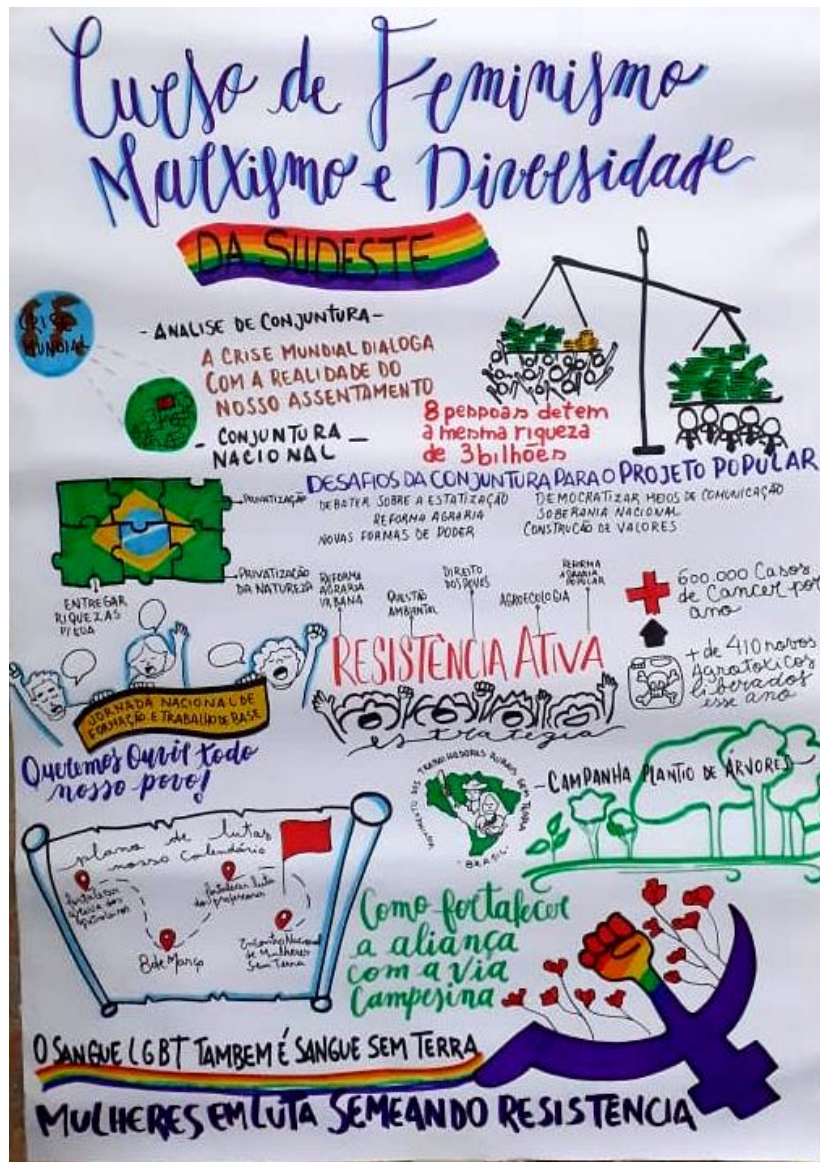 Curso de Feminismo
Marxismo e Diversidade
DA SUDESTE
CRISE
MUNDIAL
- ANALISE DE CONJUNTURA -
A CRISE MUNDIAL DIALOGA
COM A REALIDADE DO
NOSSO ASSENTAMENTO
- CONJUNTURA -
NACIONAL
8 pessoas detem
a mesma riqueza
de 3 bilhões
DESAFIOS DA CONJUNTURA PARA O PROJETO POPULAR
DEBATER SOBRE A ESTATIZAÇÃO
REFORMA AGRARIA
NOVAS FORMAS DE PODER
DEMOCRATIZAR MEIOS DE COMUNICAÇÃO
SOBERANIA NACIONAL
CONSTRUÇÃO DE VALORES
PRIVATIZAÇÃO
PRIVATIZAÇÃO
DA NATUREZA
ENTREGAR
RIQUEZAS
P/ EUA
REFORMA
AGRARIA
URBANA
QUESTÃO
AMBIENTAL
DIREITO
DOS POVOS
AGROECOLOGIA
REFORMA
AGRARIA
POPULAR
RESISTÊNCIA ATIVA
estrategia
600.000 Casos
de Cancer por
ano
+ de 410 novos
Agrotoxicos
liberados
esse ano
JORNADA NACIONAL DE
FORMAÇÃO E TRABALHO DE BASE
Queremos Ouvir todo
nosso povo!
MOVIMENTO DOS TRABALHADORES RURAIS SEM TERRA
BRASIL
- CAMPANHA PLANTIO DE ÁRVORES -
plano de lutas
nosso Calendário
fortalecer
greve dos
fortalecer luta
dos professores
8 de Março
Encontro Nacional
de Mulheres
Sem Terra
Como fortalecer
a aliança
com a via
Campesina
O SANGUE LGBT TAMBEM É SANGUE SEM TERRA
MULHERES EM LUTA SEMEANDO RESISTENCIA